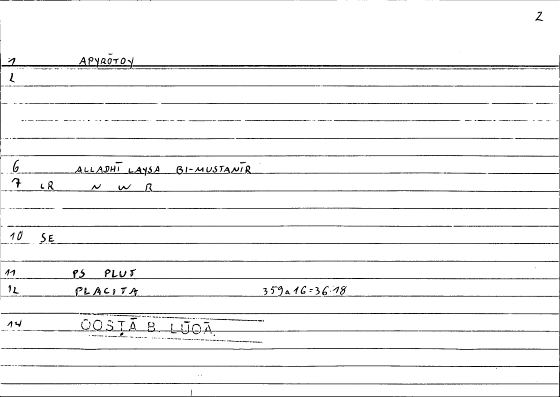 2
1 APYRŌTOY
2
6 ALLADHĪ LAYSA BI-MUSTANĪR
7 LR N W R
10 SE
11 PS PLUT
12 PLACITA 359a16=36.18
14 QOSṬĀ B. LŪQĀ